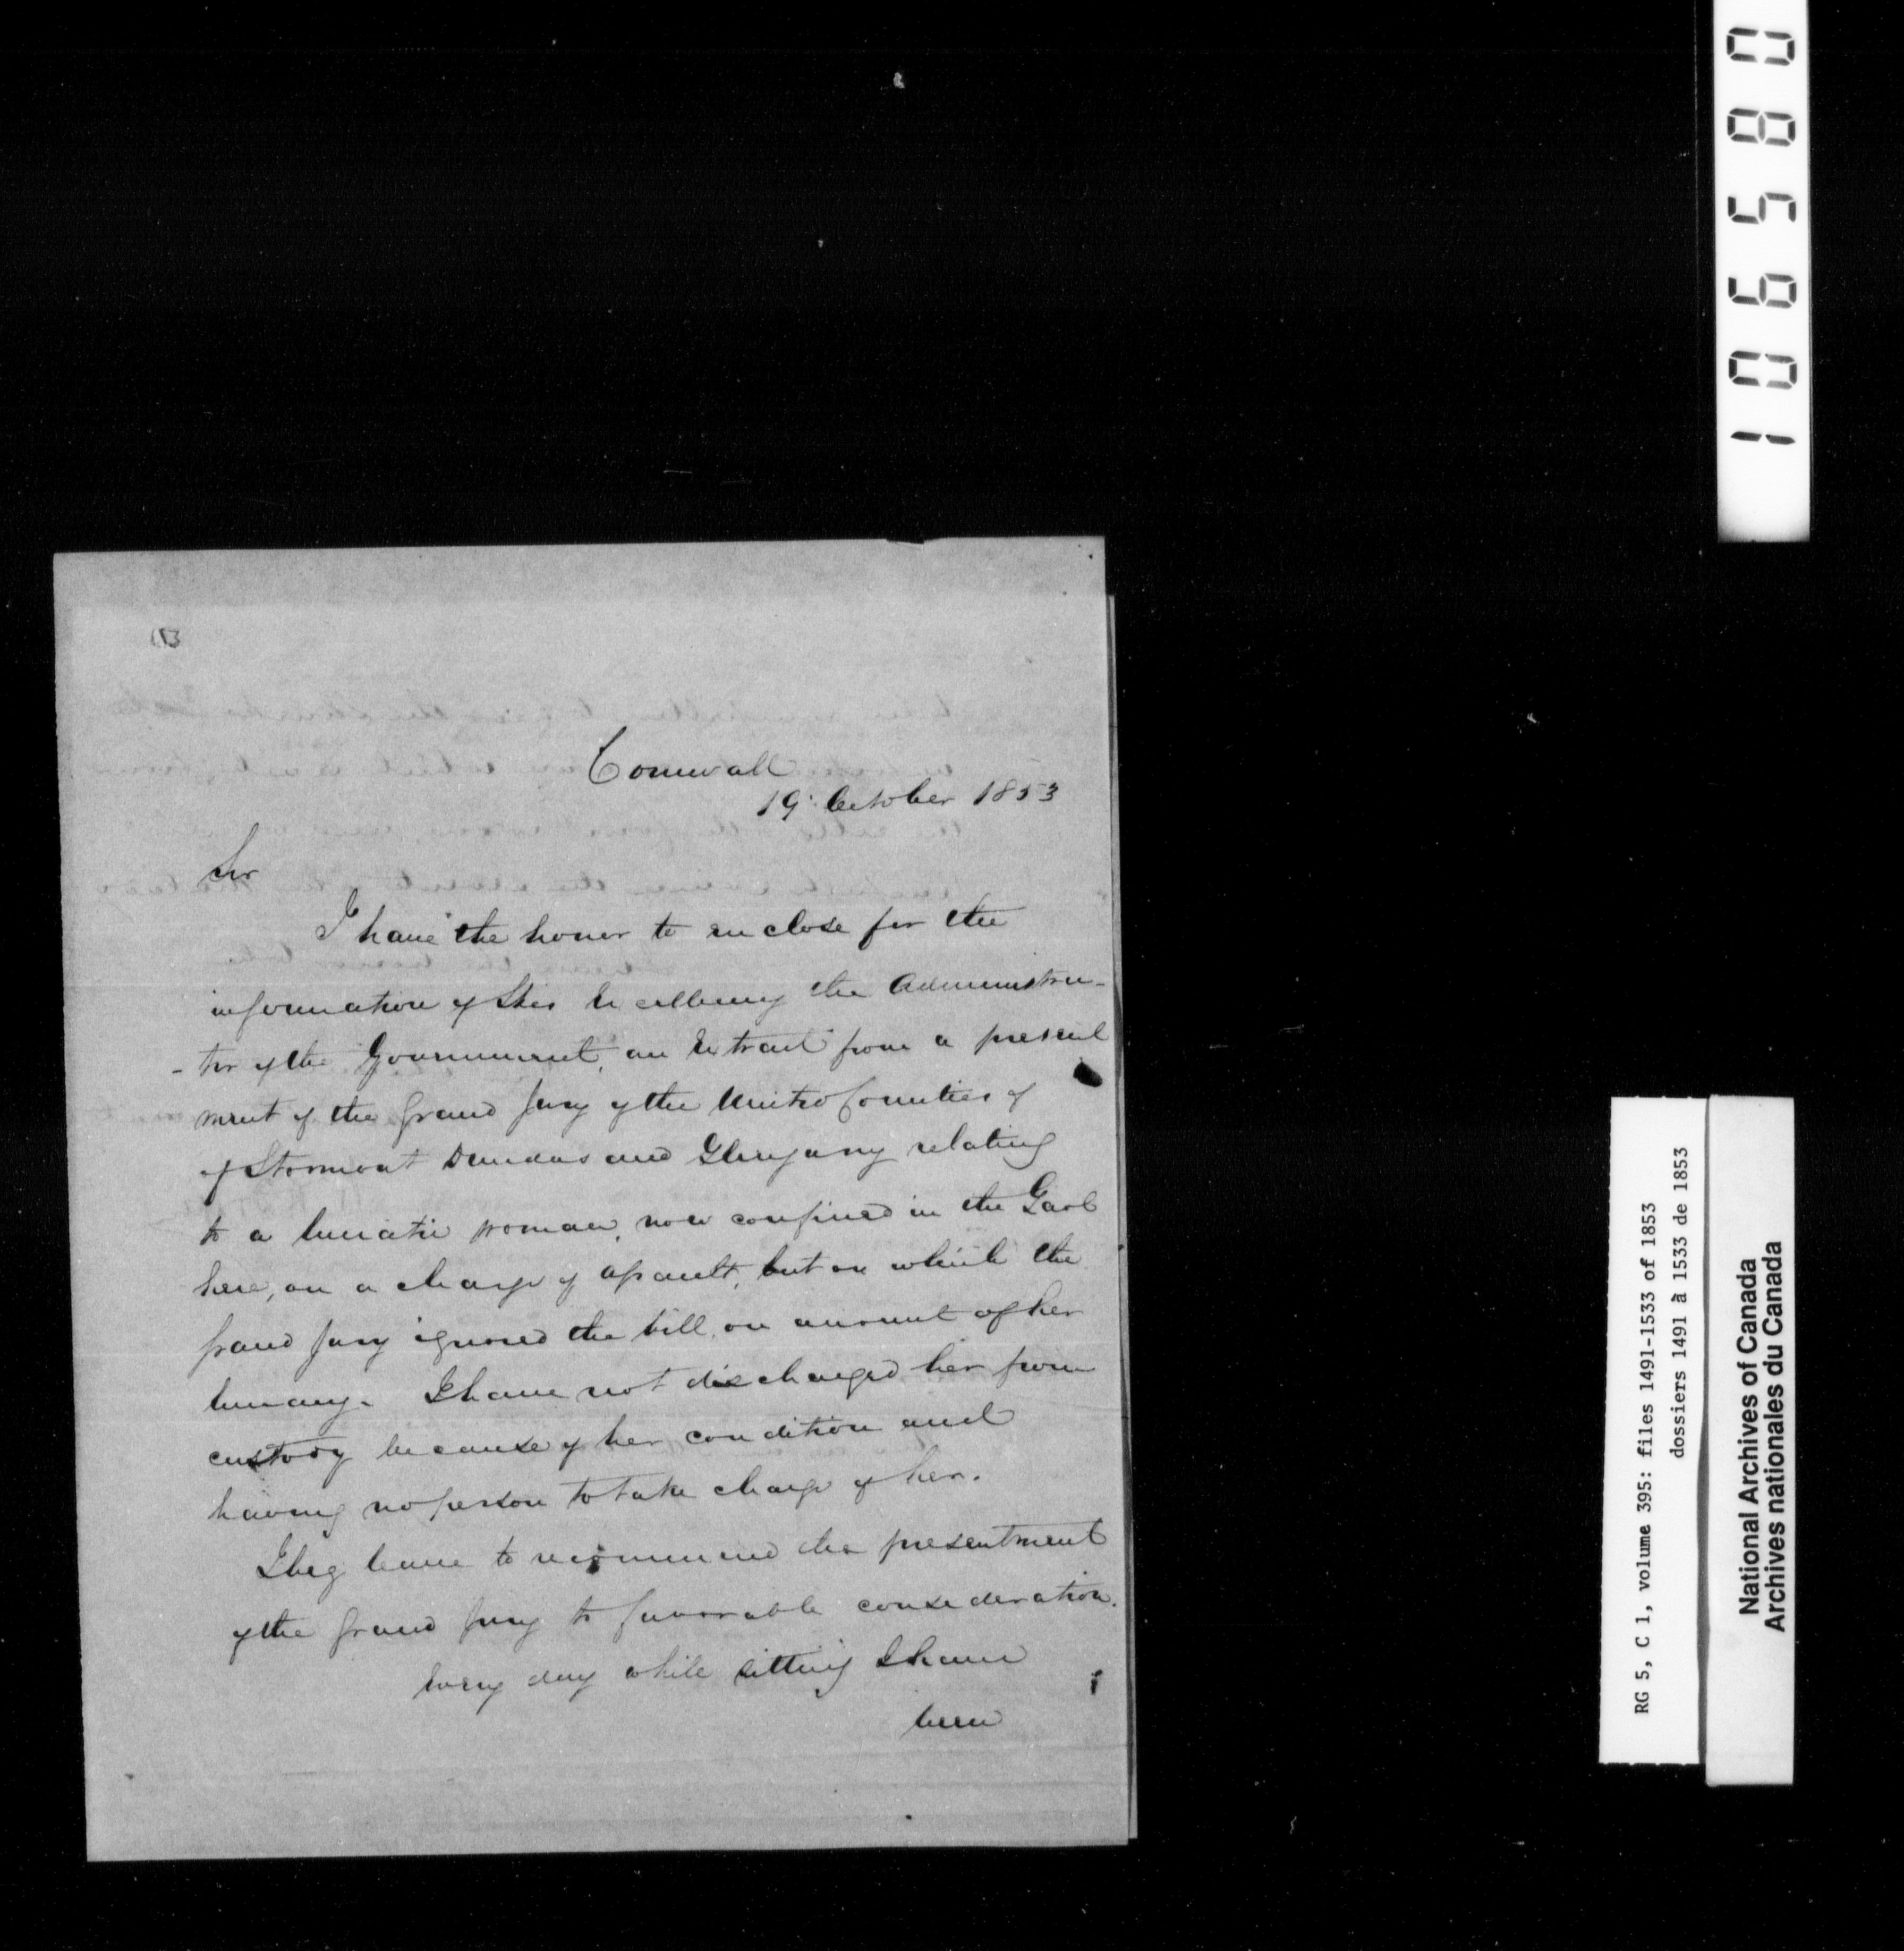 Cornwall
19 October 1853
Sir
I have the honor to enclose for the
information of His Excellency the Administra-
-tor of the Government, an Extract from a present
ment of the Grand Jury of the United Counties of
of Stormont Dundas and Glengarry relating
to a lunatic woman, now confined in the Gaol
here, on a charge of assault, but on which the
Grand Jury ignored the bill, on account of her
lunacy. I have not discharged her from
custody because of her condition and
having no person to take charge of her.
I beg leave to recommend the presentment
of the Grand Jury to favorable consideration.
Every day while sitting I have
been
106580
RG 5, C 1, volume 395: files 1491-1533 of 1853
dossiers 1491 à 1533 de 1853
National Archives of Canada
Archives nationales du Canada